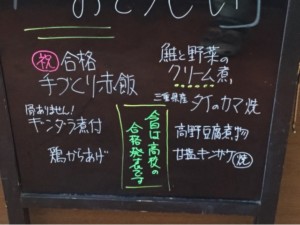 おとくい
祝 合格
手づくり赤飯
骨ありません!
ギンダラ煮付
鶏からあげ
今日は高校の
合格発表です
鮭と野菜の
クリーム煮
三重県産 タイのカマ焼
高野豆腐煮物
甘塩キンサケ 焼